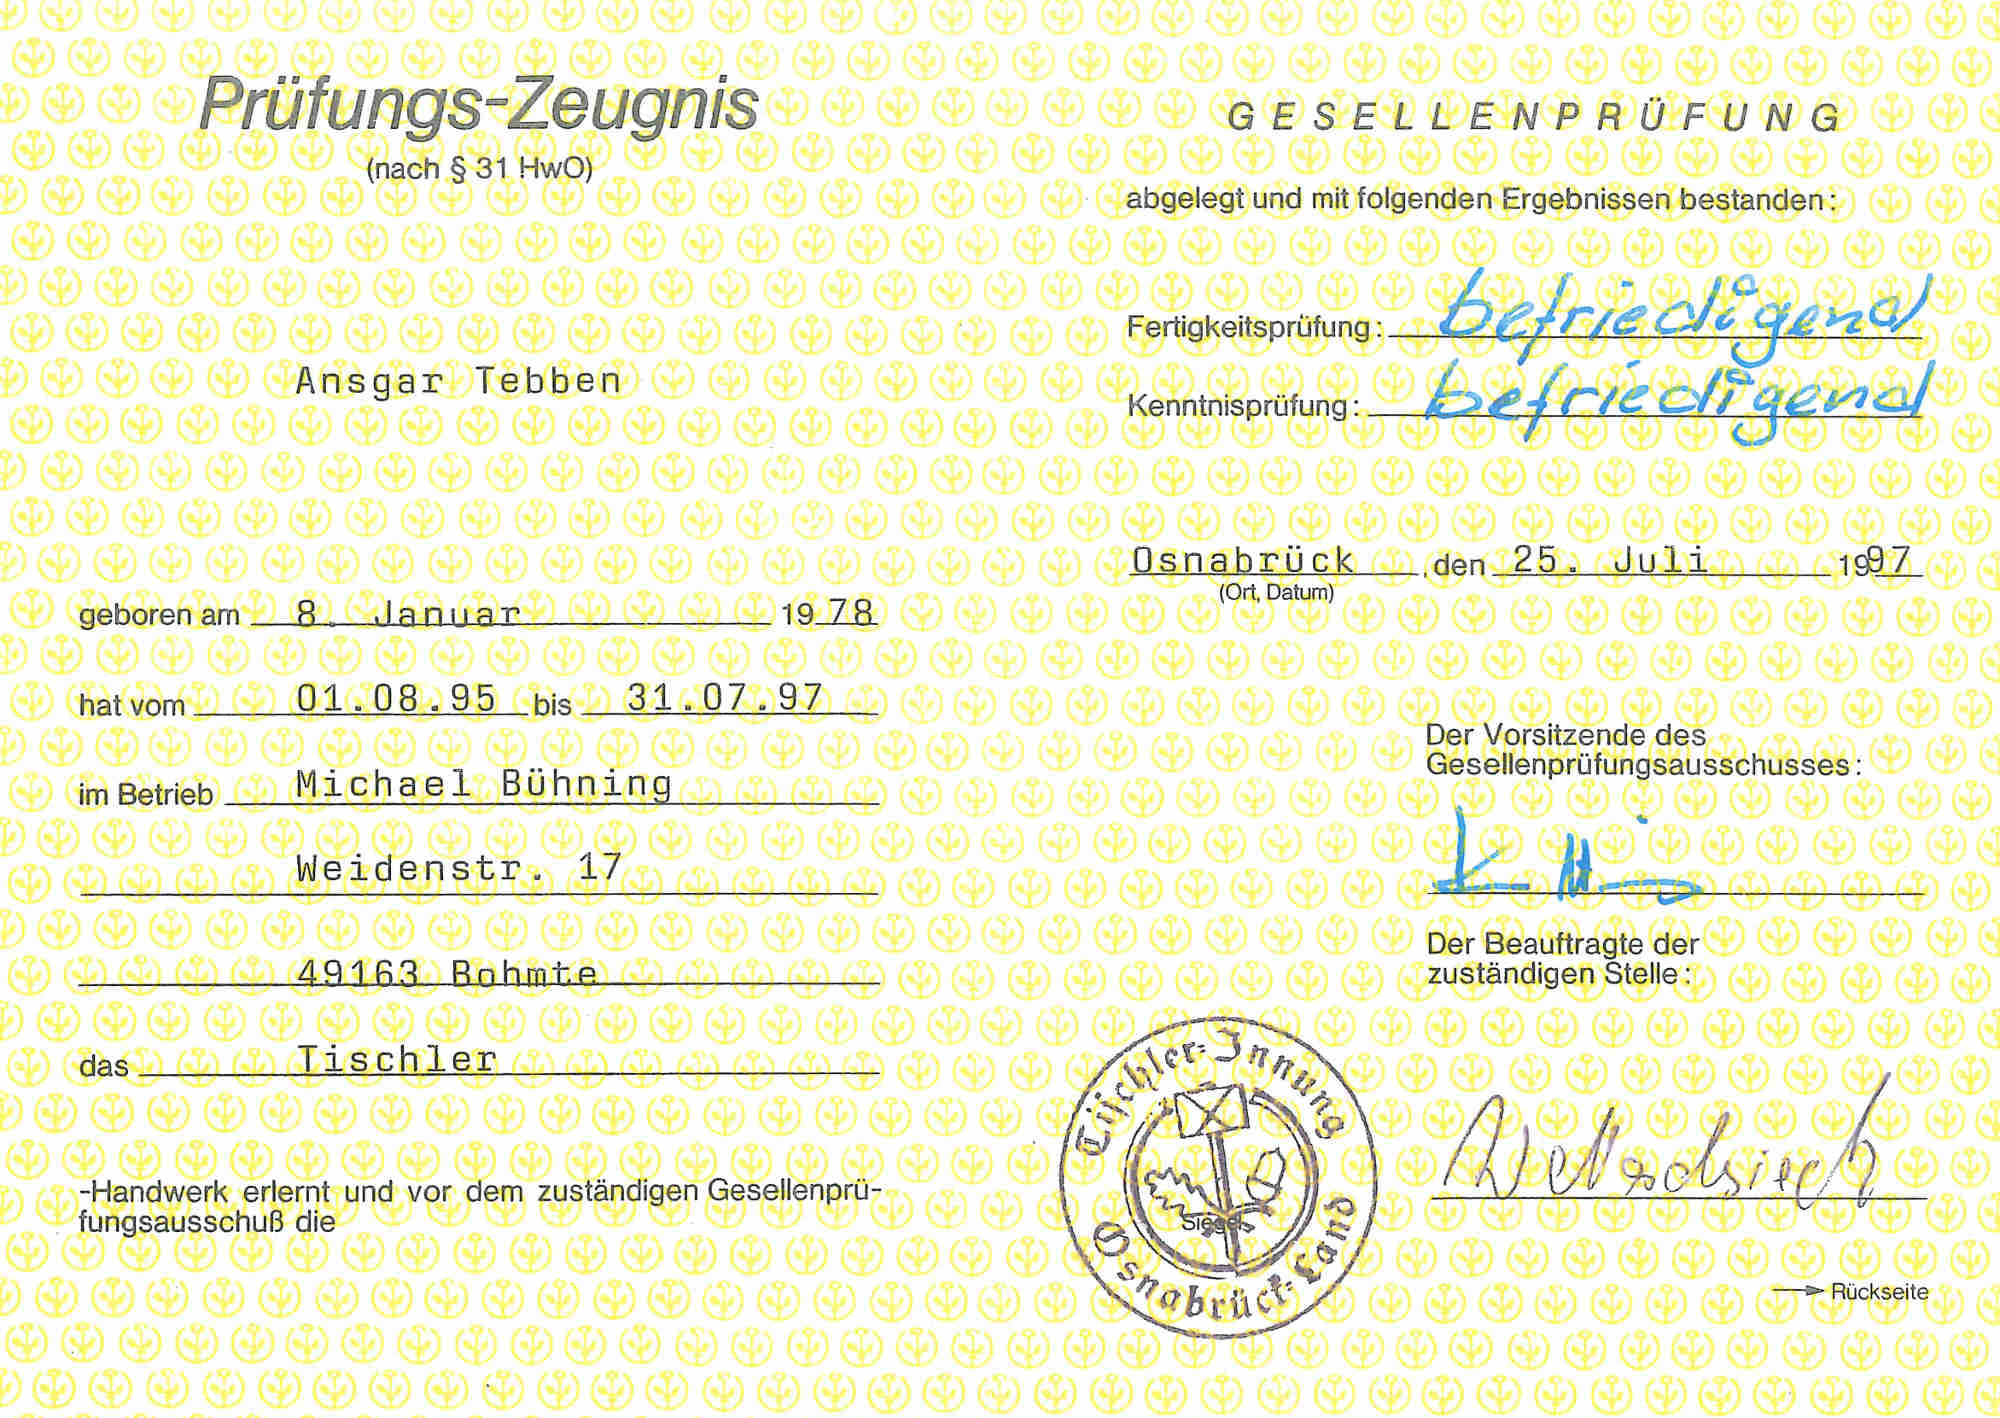 Prüfungs-Zeugnis
(nach § 31 HwO)
Ansgar Tebben
geboren am 8. Januar 1978
hat vom 01.08.95 bis 31.07.97
im Betrieb Michael Bühning
Weidenstr. 17
49163 Bohmte
das Tischler
-Handwerk erlernt und vor dem zuständigen Gesellenprü-
fungsausschuß die
GESELLENPRÜFUNG
abgelegt und mit folgenden Ergebnissen bestanden:
Fertigkeitsprüfung: befriedigend
Kenntnisprüfung: befriedigend
Osnabrück, den 25. Juli 1997
(Ort, Datum)
Der Vorsitzende des
Gesellenprüfungsausschusses:
Der Beauftragte der
zuständigen Stelle:
Tischler-Innung
Siegel
Osnabrück-Land
Rückseite